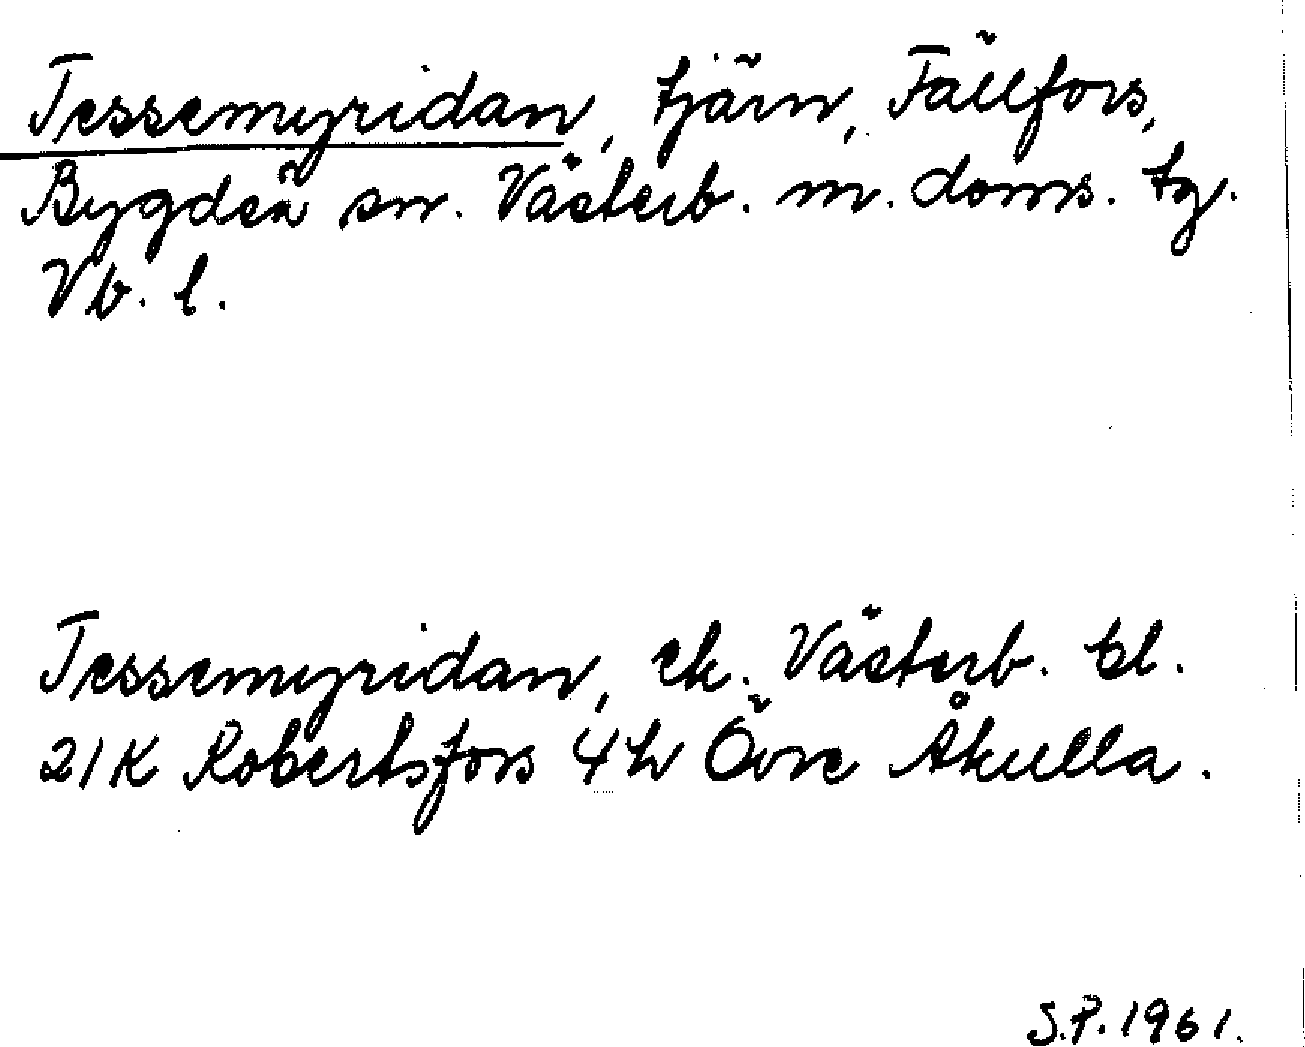 Tessemyridan, tjärn, Fällfors,
Bygdeå sn. Västerb. m. doms. tg.
Vb. l.
Tessemyridan, ek. Västerb. bl.
21K Robertsfors 4h Övre Åkulla.
S.P. 1961.